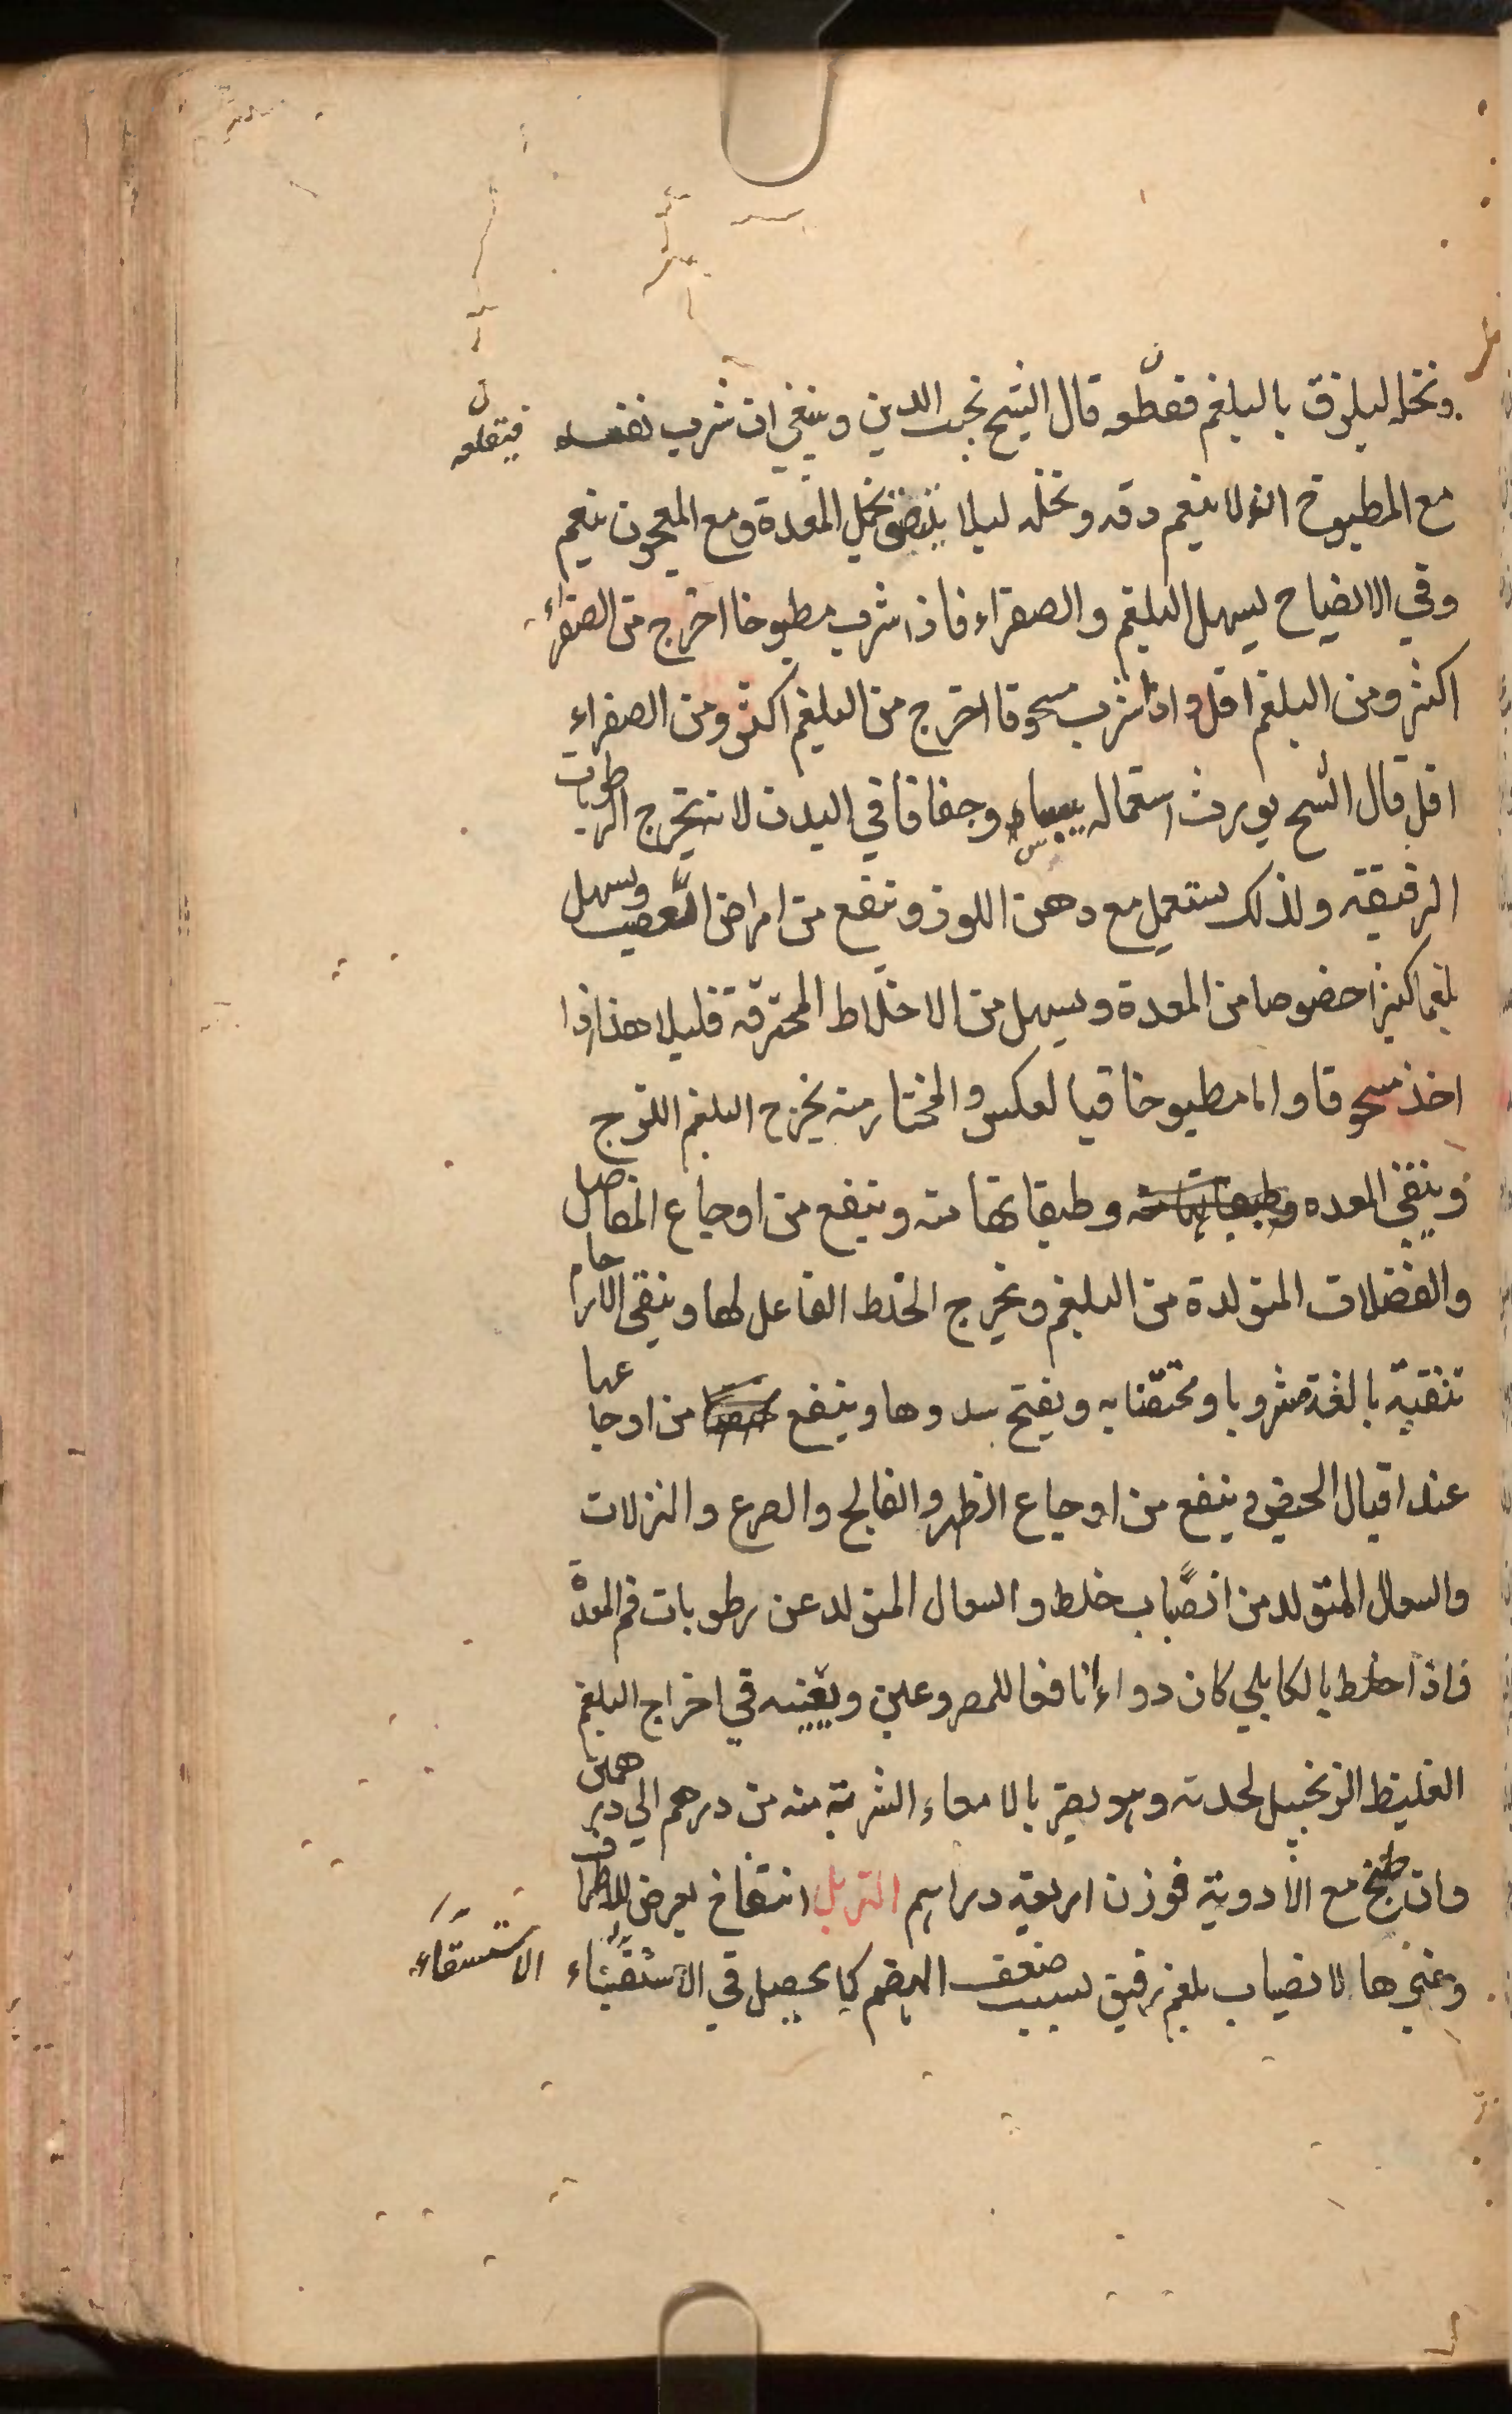 ونخله ليلزق بالبلغم فقطعه قال الشيخ نجيب الدين وينبغي ان شرب نفسه فيتعلق
مع المطبوخ ان لا ينعم دقه ونخله ليلا يلتصق بخمل المعدة ومع المعجون ينعم
وفي الايضاح يسهل البلغم والصفراء فاذا شرب مطبوخا اخرج من الصفراء
اكثر ومن البلغم اقل واذا شرب مسحوقا اخرج من البلغم اكثر ومن الصفراء
اقل قال الشيخ يورث استعماله يبسا وجفافا في البدن لانه يخرج الرطوبات
الرقيقة ولذلك يستعمل مع دهن اللوز وينفع من امراض العصب ويسهل
بلغما كثيرا خصوصا من المعدة ويسهل من الاخلاط المحترقة قليلا هذا اذا
اخذ مسحوقا واما مطبوخا فبالعكس والمختار منه يخرج البلغم اللزج
وينقي المعده وطبقاتها منه وينفع من اوجاع المفاصل
والفضلات المتولدة من البلغم ويخرج الخلط الفاعل لها وينقي الارحام
تنقية بالغة مشروبا ومحتقنا به ويفتح سددها وينفع من اوجاعها
عند اقبال الحيض وينفع من اوجاع الظهر والفالج والصرع والنزلات
والسعال المتولد من انصباب خلط والسعال المتولد عن رطوبات فم المعدة
فاذا خلط بالكابلي كان دواء نافعا للمصروعين ويعينه في اخراج البلغم
الغليظ الزنجبيل لحدته وهو يضر بالامعاء الشربة منه من درهم الي درهمين
وان طبخ مع الادوية فوزن اربعة دراهم التربل انتفاخ يعرض للاطراف
وغيرها لانصباب بلغم رقيق بسبب ضعف الهضم كما يحصل في الاستسقاء
الاستسقاء